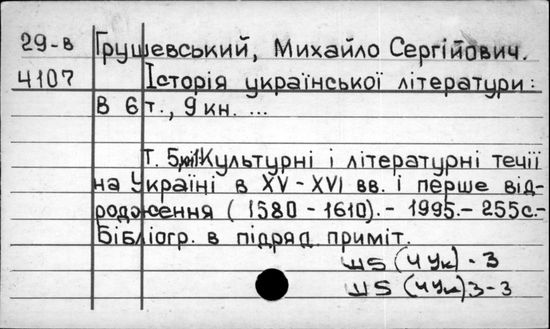 29-в Грушевський, Михайло Сергійович.
4107 Історія української літератури:
В 6 т., 9 кн. ...
Т. 5, кн.1 Культурні і літературні течії
на Україні в XV-XVI вв. і перше від-
родження (1580 - 1610).- 1995.- 255с.-
Бібліогр. в підряд. приміт.
Ш5 (4Ук) - 3
Ш5 (4Ук)3-3